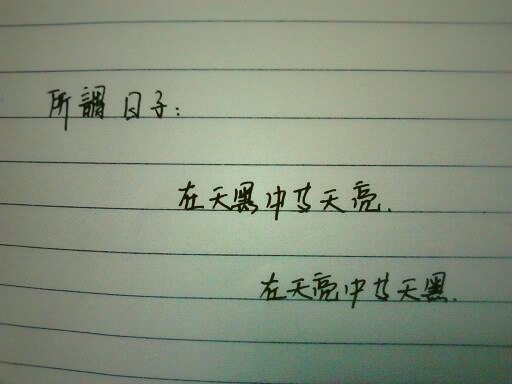 所謂日子:
在天黑中等天亮.
在天亮中等天黑.